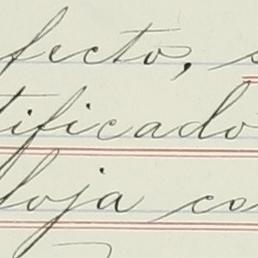 fecto, s
tificado
loja co